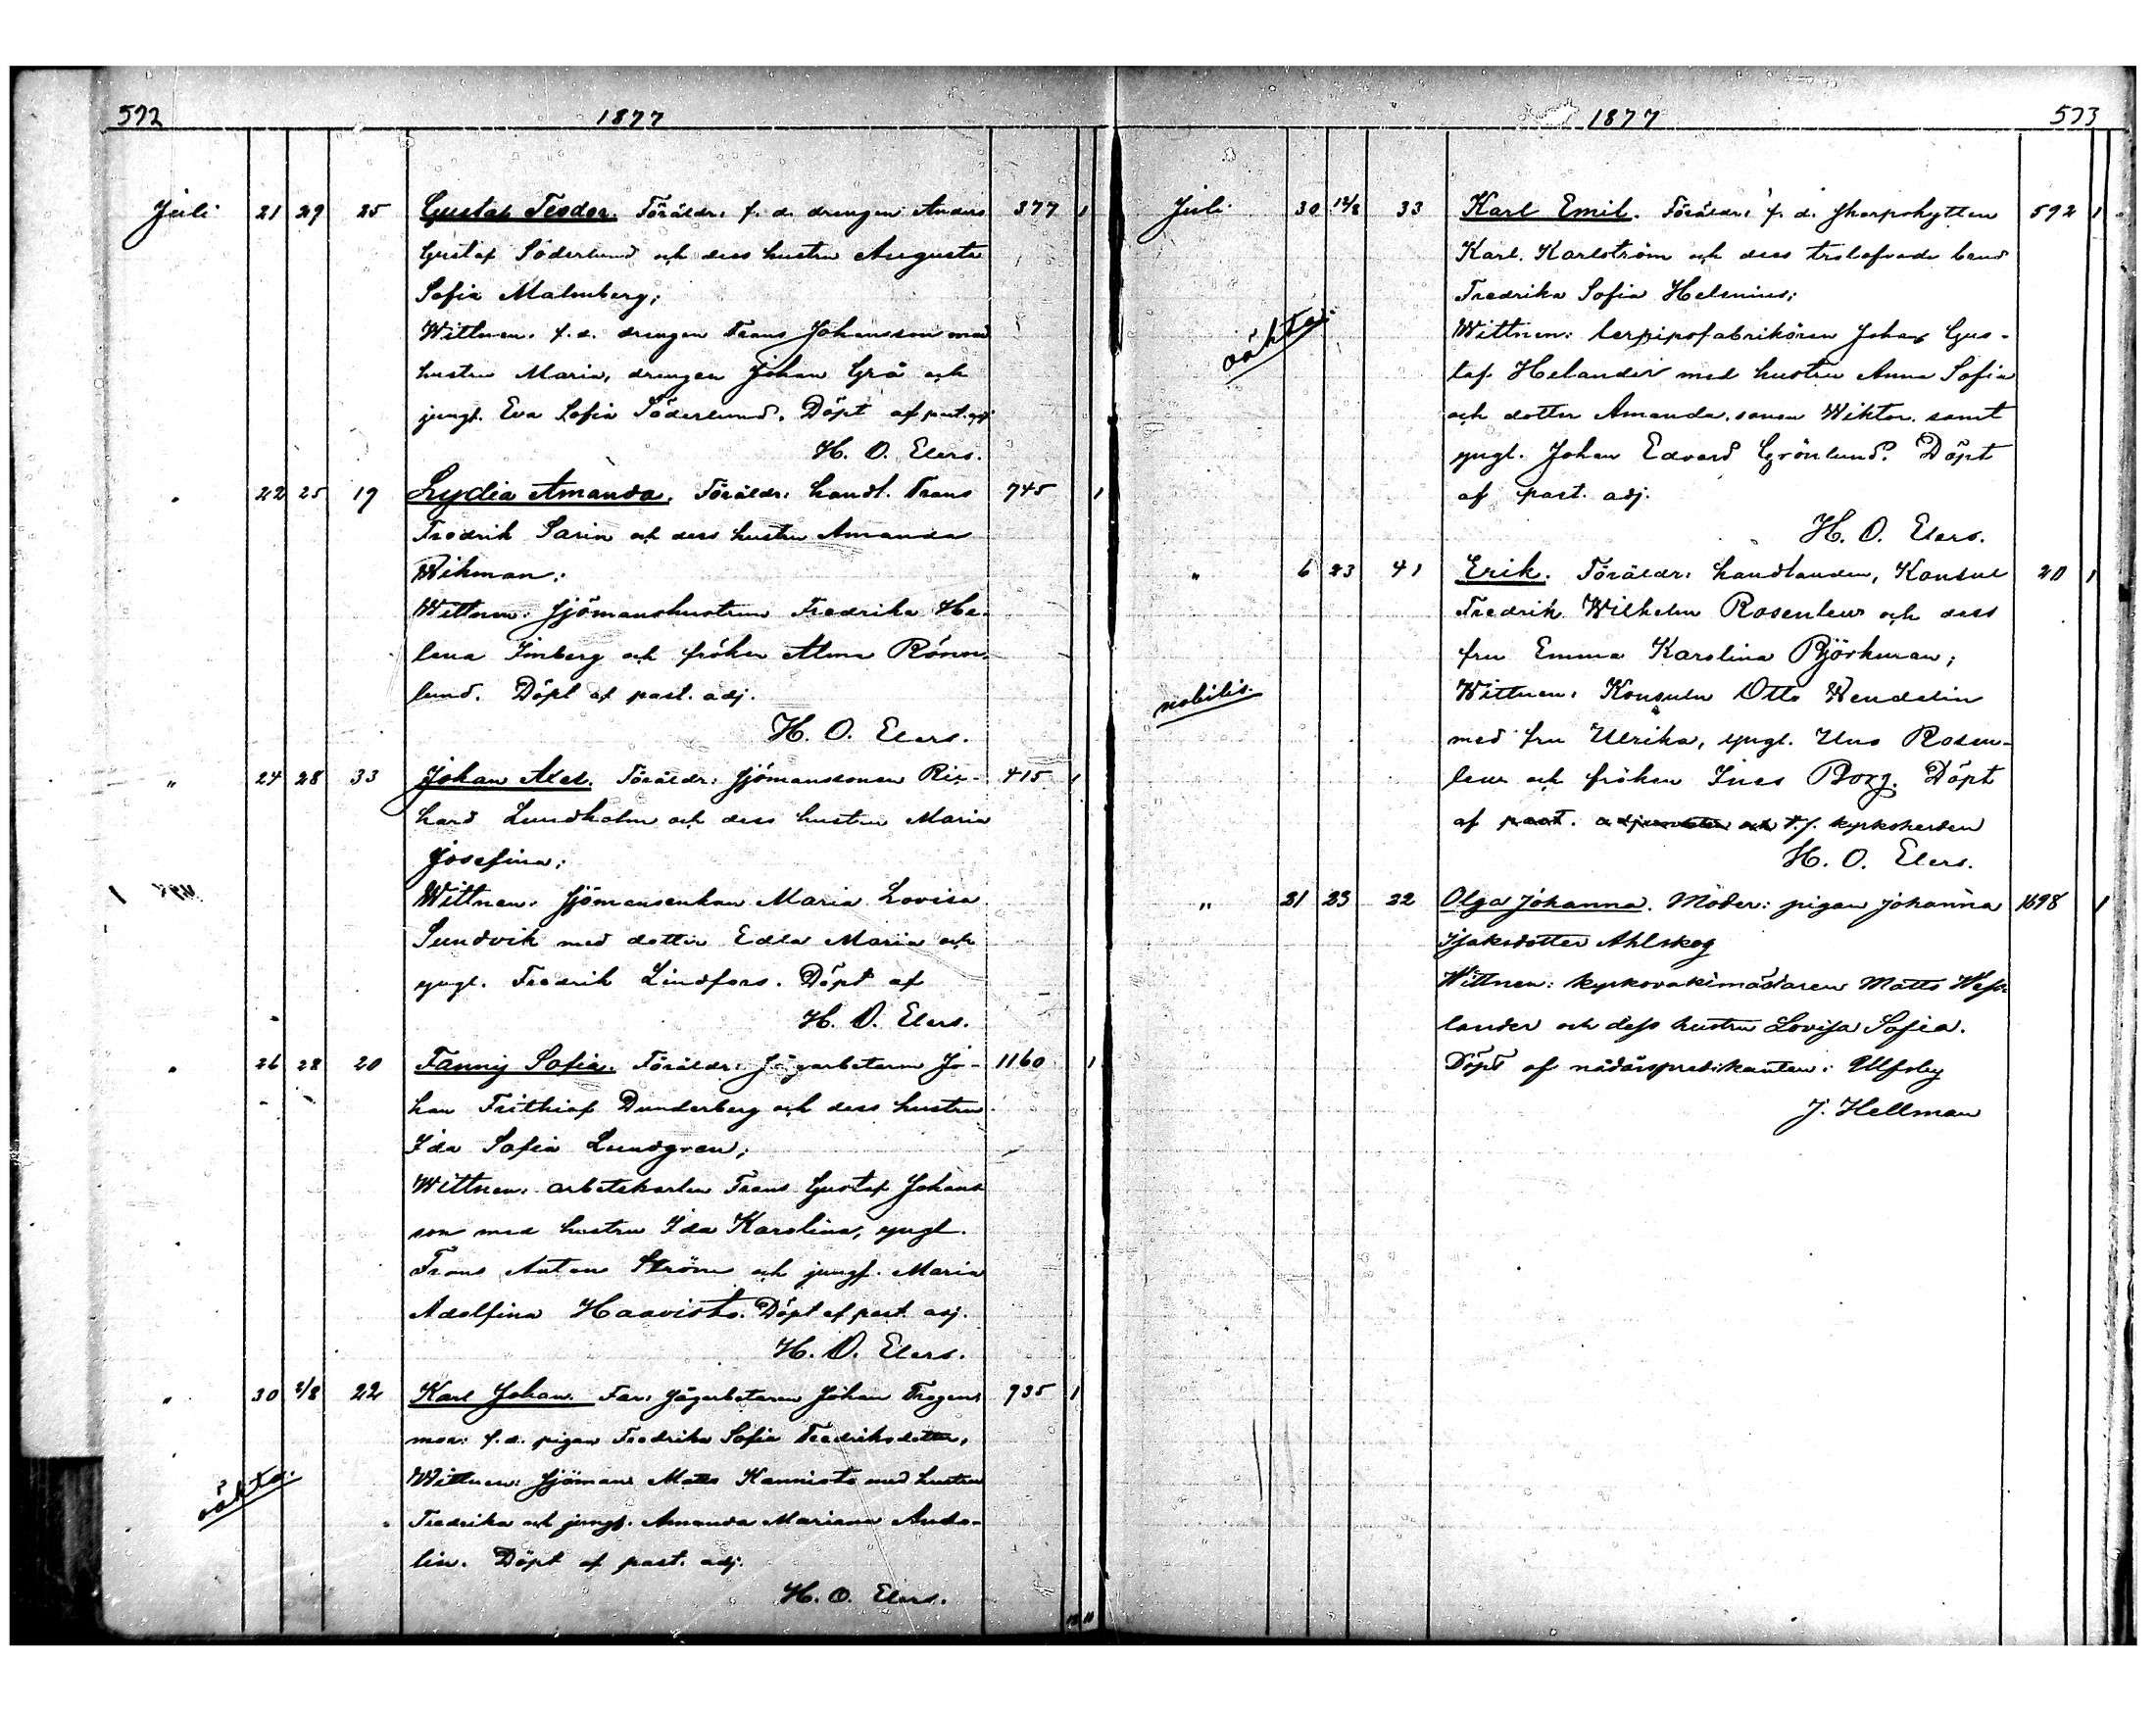 572 1877
Juli 21 29 25 Gustaf Teodor. Föräldr: f. d. drengen Anders 377 1
Gustaf Söderlund och dess hustru Augusta
Sofia Malmberg;
Wittnen: f. d. drengen Frans Johansson med
hustru Maria, drengen Johan Grå och
jungf. Eva Sofia Söderlund. Döpt af past. adj.
H. O. Elers.
" 22 25 19 Lydia Amanda. Föräldr: handl. Frans 745 1
Fredrik Sarin och dess hustru Amanda
Wikman;
Wittnen: Sjömanshustrun Fredrika He-
lena Imberg och fröken Alma Rönn-
lund. Döpt af past. adj.
H. O. Elers.
" 24 28 33 Johan Axel. Föräldr: Sjömanssonen Rik- 415 1
hard Lundholm och dess hustru Maria
Josefina;
Wittnen: Sjömansenkan Maria Lovisa
Sundvik med dotter Edla Maria och
yngl. Fredrik Lindfors. Döpt af
H. O. Elers.
" 26 28 20 Fanny Sofia. Föräldr: Sågarbetaren Jo- 1160 1
han Frithiof Dunderberg och dess hustru
Ida Sofia Lundgren;
Wittnen: arbetskarlen Frans Gustaf Johans
son med hustru Ida Karolina, yngl.
Frans Anton Ström och jungf. Maria
Adolfina Haavisto. Döpt af past. adj.
H. O. Elers.
" 30 2/8 22 Karl Johan. Far: Sågarbetaren Johan 935 1
mor: f. d. pigan Fredrika Sofia Fredriksdotter,
Wittnen: Sjöman Matts Kannisto med hustru
oäkta:
Fredrika och jungf. Amanda Mariana Anda-
lin. Döpt af past. adj.
H. O. Elers.
1877 573
Juli 30 12/8 33 Karl Emil. Föräldr: f. d. Skarpskytten 592 1
Karl Karlström och dess trolofvade
Fredrika Sofia Helenius;
oäkta:
Wittnen: lerpipsfabrikören Johan Gus-
taf Helander med hustru Anna Sofia
och dotter Amanda, sonen Wiktor samt
yngl. Johan Edvard Grönlund. Döpt
af past. adj.
H. O. Elers.
" 6 23 41 Erik. Föräldr: handlanden, Konsul 20 1
Fredrik Wilhelm Rosenlew och dess
fru Emma Karolina Björkman;
nobilis.
Wittnen: Konsuln Otto Wendelin
med fru Ulrika, yngl. Uno Rosen-
lew och fröken Ines Borg. Döpt
af past. adjunkten och t.f. kyrkoherden
H. O. Elers.
" 21 23 22 Olga Johanna. Moder: pigan Johanna 1698 1
Isaksdotter Ahlskog
Wittnen: kyrkovaktmästaren Matts
lander och dess hustru Lovisa Sofia.
Döpt af nådårspredikanten i Ulfsby
J. Hellman